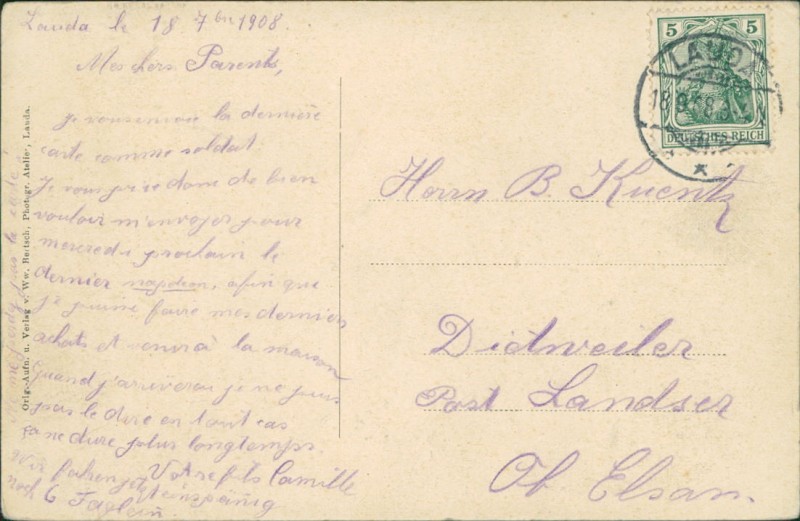 Lauda le 18 7bre 1908.
Mes chers Parents,
je vous envoie la dernière
carte comme soldat.
Je vous prie donc de bien
vouloir m'envoyer pour
mercredi prochain le
dernier napoleon, afin que
je puisse faire mes derniers
achats et venir à la maison
Quand j'arriverai je ne puis
pas le dire en tout cas
ça ne dure plus longtemps.
Votre fils Camille
Wir fahren jetzt einspänig
noch 6 Täglein.
Orig.-Aufn. u. Verlag v. Ww. Bartsch, Photogr. Atelier, Lauda.
5 5
DEUTSCHES REICH
LAUDA
18.9.08.
Herrn B. Kuentz
Didweiler
Post Landser
Ob. Elsass.